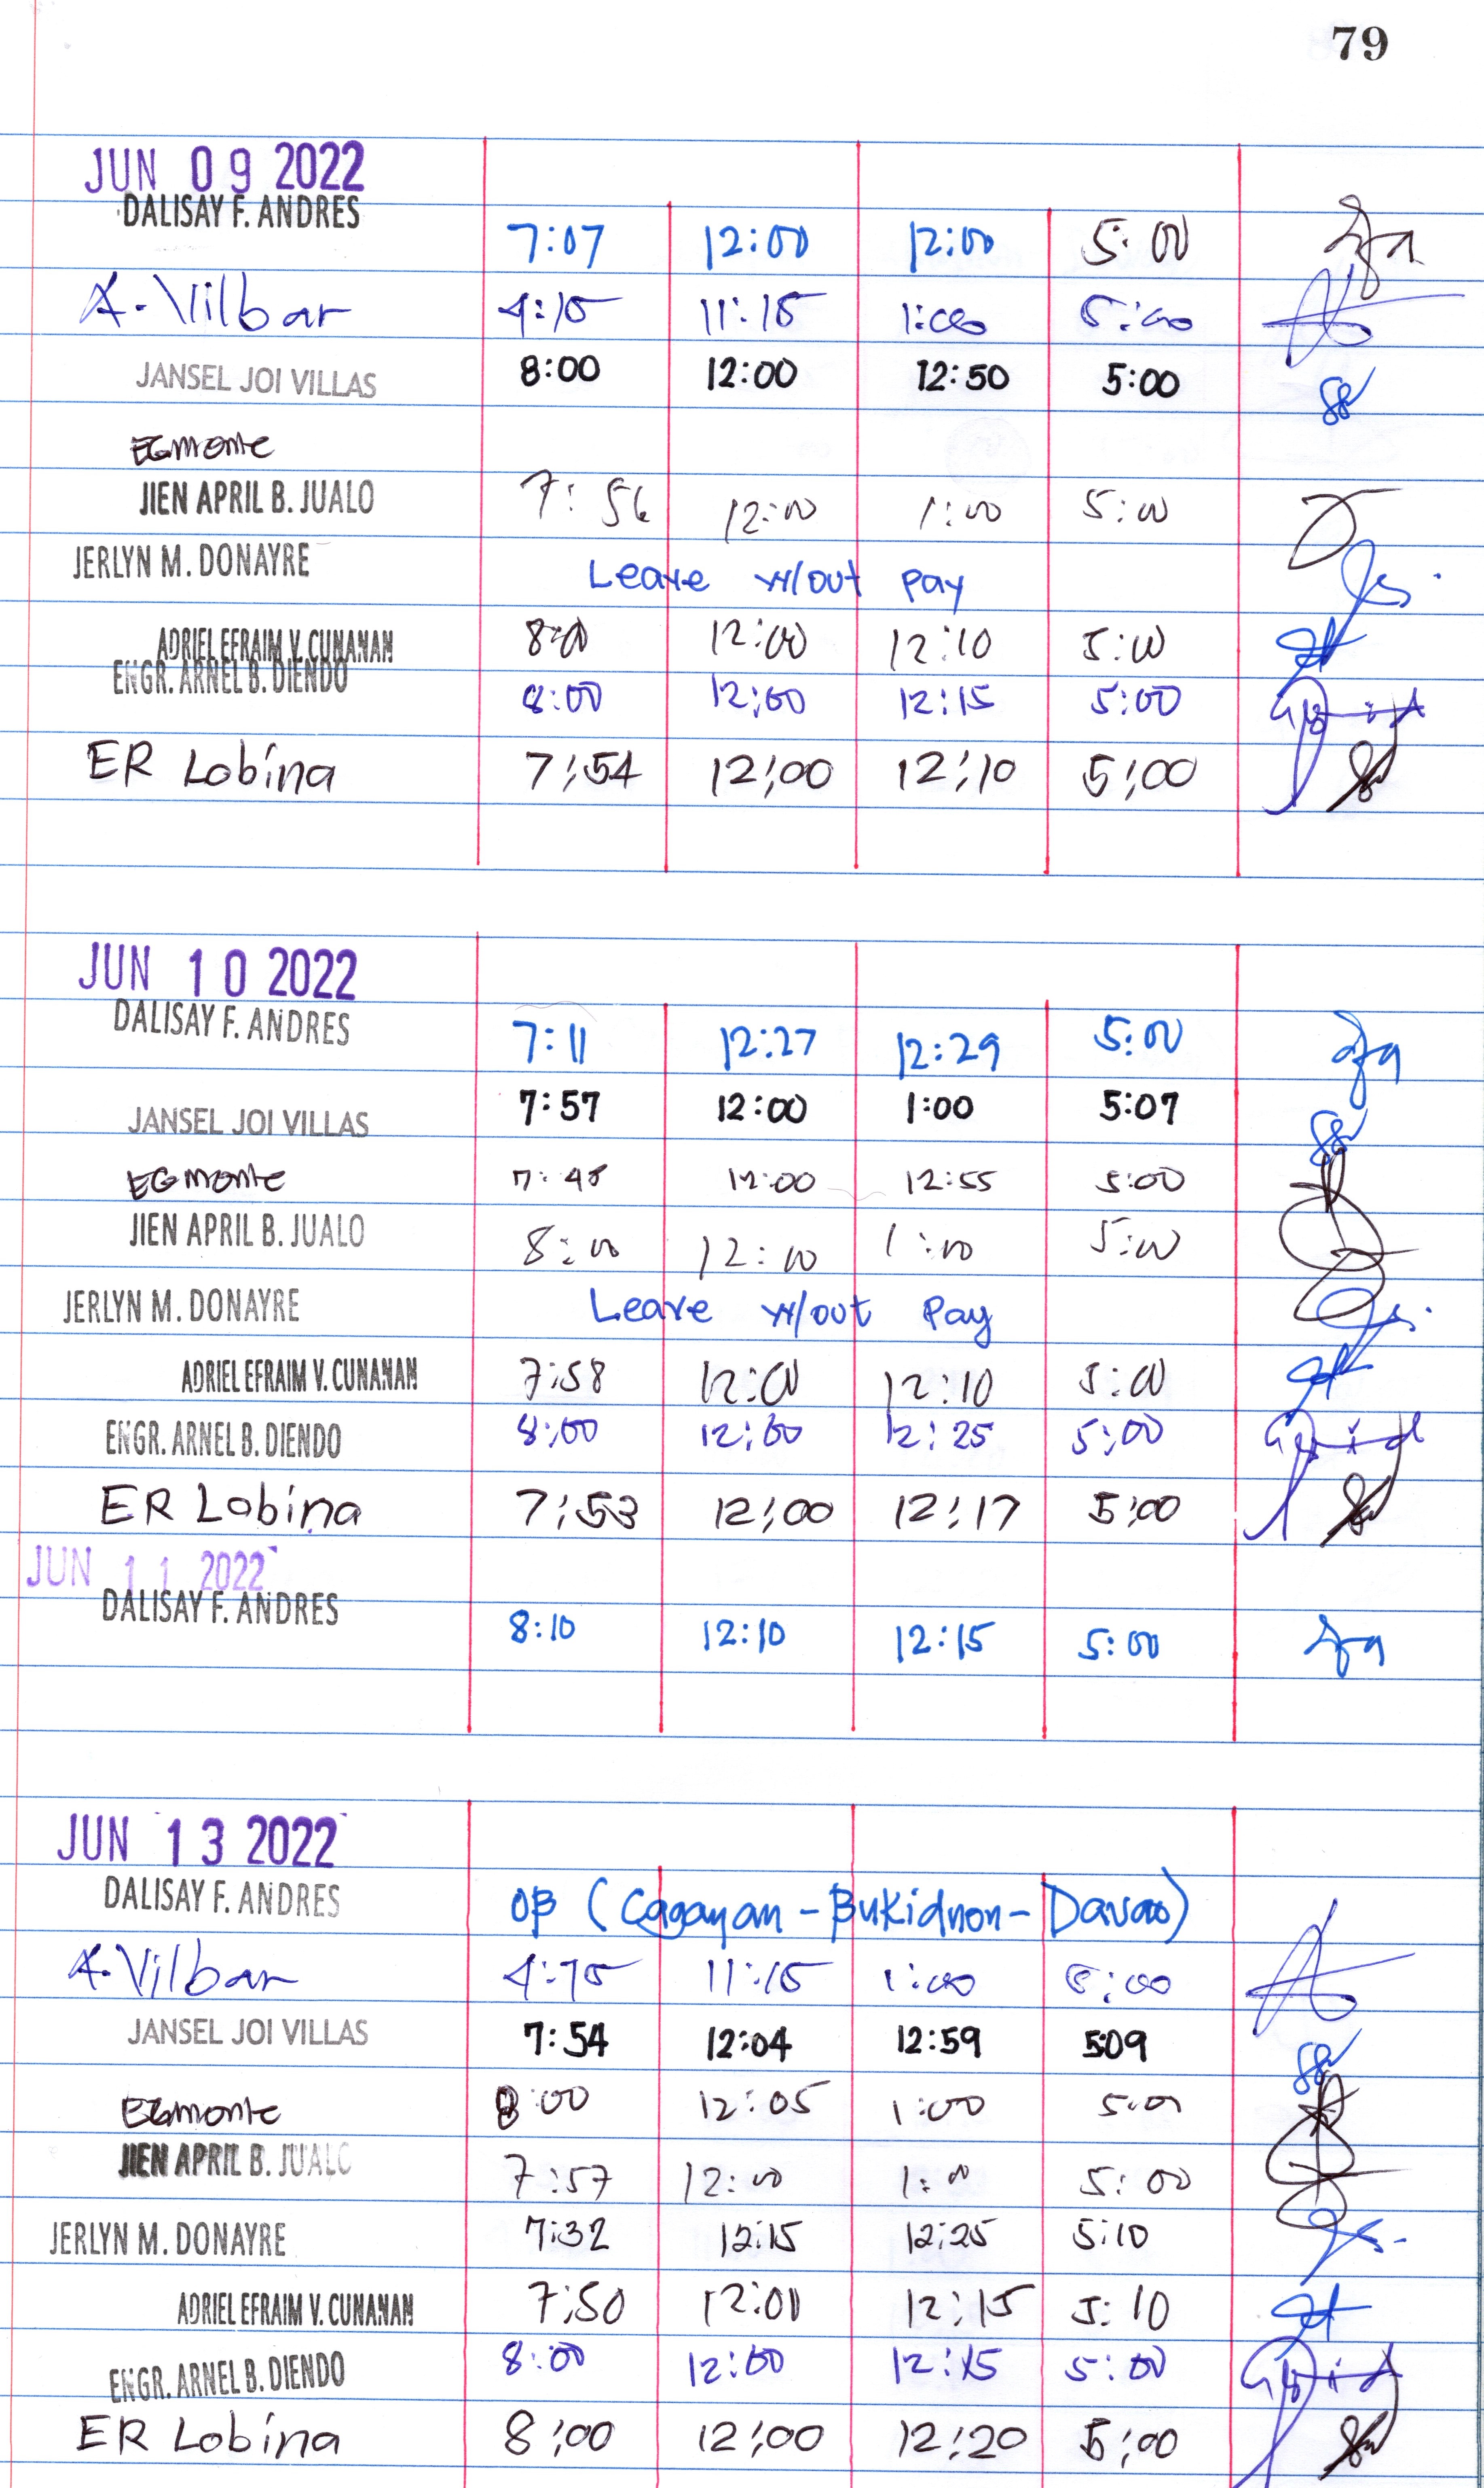 79
JUN 09 2022
DALISAY F. ANDRES 7:07 12:00 12:00 5:00
A. Vilbar 4:15 11:15 1:00 5:00
JANSEL JOI VILLAS 8:00 12:00 12:50 5:00
EGmonte
JIEN APRIL B. JUALO 7:56 12:00 1:00 5:00
JERLYN M. DONAYRE Leave w/out pay
ADRIEL EFRAIM V. CUNANAN 8:00 12:00 12:10 5:00
ENGR. ARNEL B. DIENDO 8:00 12:00 12:15 5:00
ER Lobina 7:54 12:00 12:10 5:00
JUN 10 2022
DALISAY F. ANDRES 7:11 12:27 12:29 5:00
JANSEL JOI VILLAS 7:57 12:00 1:00 5:07
EGmonte 7:48 12:00 12:55 5:00
JIEN APRIL B. JUALO 8:00 12:00 1:00 5:00
JERLYN M. DONAYRE Leave w/out Pay
ADRIEL EFRAIM V. CUNANAN 7:58 12:00 12:10 5:00
ENGR. ARNEL B. DIENDO 8:00 12:00 12:25 5:00
ER Lobina 7:53 12:00 12:17 5:00
JUN 11 2022
DALISAY F. ANDRES 8:10 12:10 12:15 5:00
JUN 13 2022
DALISAY F. ANDRES OB (Cagayan - Bukidnon - Davao)
A. Vilbar 4:15 11:15 1:00 5:00
JANSEL JOI VILLAS 7:54 12:04 12:59 509
EGmonte 8:00 12:05 1:00 5:00
JIEN APRIL B. JUALO 7:57 12:00 1:00 5:00
JERLYN M. DONAYRE 7:32 12:15 12:25 5:10
ADRIEL EFRAIM V. CUNANAN 7:50 12:01 12:15 5:10
ENGR. ARNEL B. DIENDO 8:00 12:00 12:15 5:00
ER Lobina 8:00 12:00 12:20 5:00